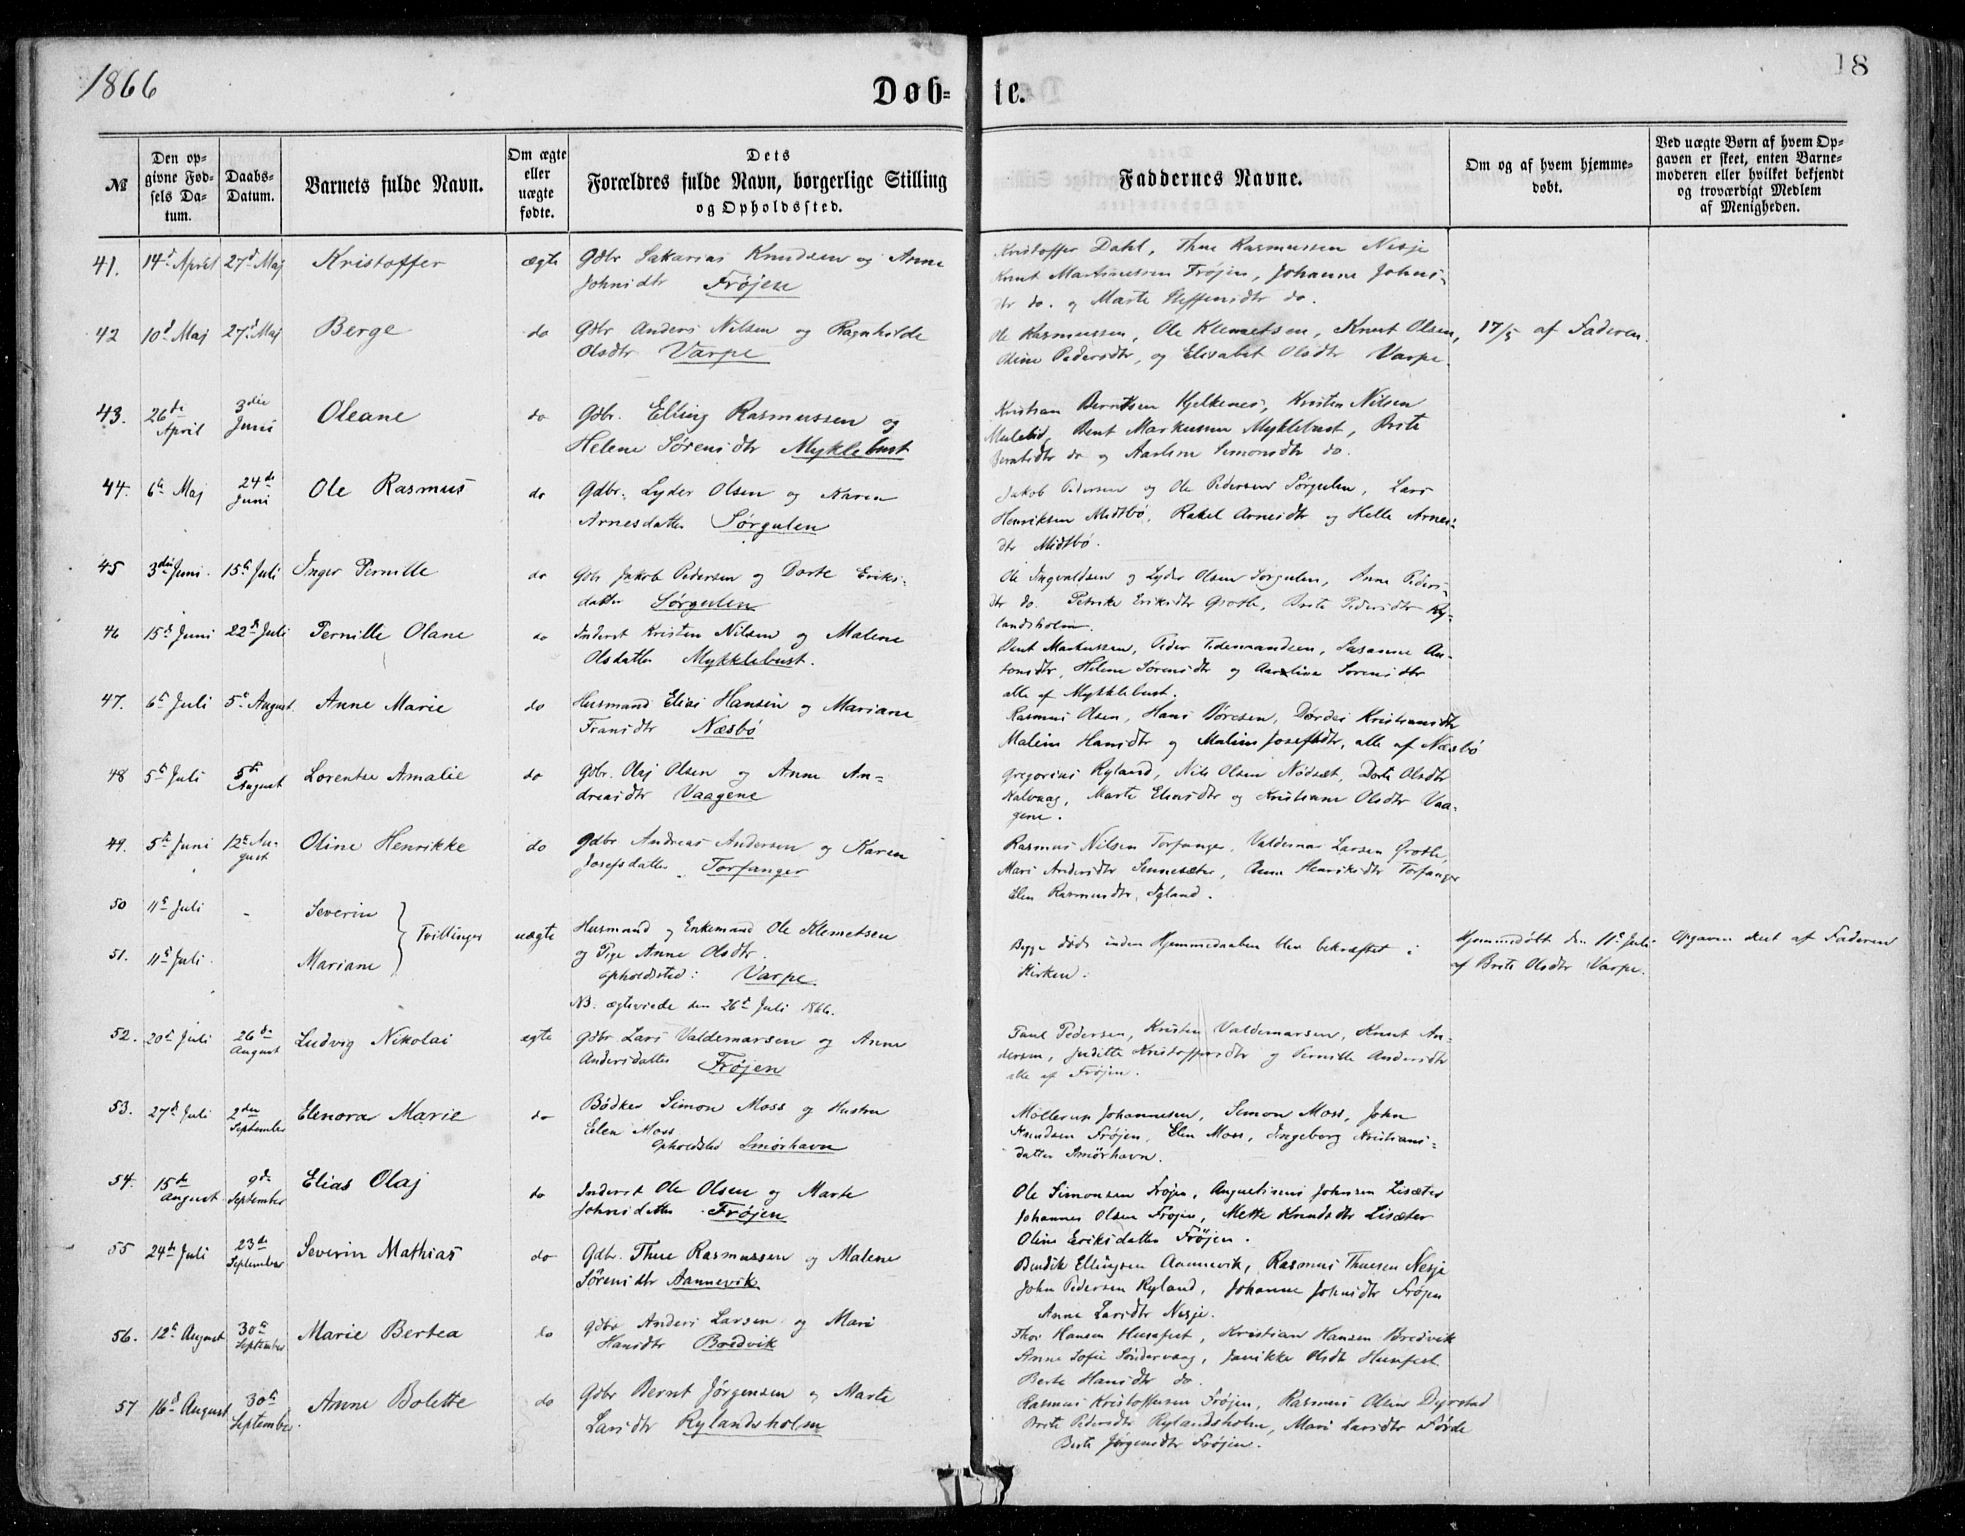 1866
Døb-te.
18
№
Den opgivne Fødsels Datum.
Daabs-Datum.
Barnets fulde Navn.
Om ægte eller uægte fødte.
Dets Forældres fulde Navn, borgerlige Stilling og Opholdssted.
Faddernes Navne.
Om og af hvem hjemmedøbt.
Ved uægte Børn af hvem Opgaven er skeet, enten Barnemoderen eller hvilket bekjendt og troværdigt Medlem af Menigheden.
41. 14d April 27d Maj Kristoffer ægte Gdbr Sakarias Knudsen og Anne
Johnsdtr Frøjen
Kristoffer Dahl, Thue Rasmussen Nesje
Knut Martinussen Frøjen, Johanne Johns-
dtr do. og Marte Steffensdtr do.
42 10d Maj 27d Maj Berge do Gdbr Anders Nilsen og Ragnhilde
Olsdtr Varpe
Ole Rasmussen, Ole Klemetsen, Knut Olsen,
Oline Pedersdtr, og Elisabet Olsdtr Varpe.
17/5 af Faderen.
43. 26de April 3die Juni Oleane do Gdbr. Elling Rasmussen og
Helene Sørensdtr Myklebust
Kristian Berntsen Hjelkenes, Kristen Nilsen
Bent Markussen Myklebust, Brite
Berntsdtr do og Simonsdtr do.
44. 6te Maj 24de Juni Ole Rasmus do Gdbr. Lyder Olsen og Karen
Arnesdatter Sørgulen
Jakob Pedersen og Ole Pedersen Sørgulen, Lars
Henriksen Midtbø, Rakel Arnesdtr og Helle Arnes-
dtr Midtbø.
45 3die Juni. 15de Juli Inger Pernille do Gdbr Jakob Pedersen og Dorte Eriks-
datter Sørgulen
Ole Ingvaldsen og Lyder Olsen Sørgulen, Anne Peders-
dtr do. Petrike Eriksdtr Grotle, Brite Pedersdtr Ry-
landsholm.
46 15de Juni 22de Juli Pernille Olane do Inderst Kristen Nilsen og Malene
Olsdatter Mykklebust.
Bent Markussen, Peder Tidemandsen, Susanne An-
tonsdtr, Helene Sørensdtr og Sørensdtr
alle af Mykklebust.
47. 6te Juli 5te August Anne Marie do Husmand Elias Hansen og Mariane
Fransdtr Næsbø
Rasmus Olsen, Hans Børesen, Dørdei Kristiansdtr
Malene Hansdtr og Malene Josefsdtr, alle af Næsbø
48 5te Juli 5te August Lorentse Amalie do Gdbr. Olaj Olsen og Anne An-
dreasdtr Vaagene
Gregorius Ryland, Nils Olsen Nødset, Dorte Olsdtr
Kalvaag, Marte Eliasdtr og Kristiane Olsdtr Vaa-
gene.
49. 5te Juni 12te August Oline Henrikke do Gdbr Andreas Andersen og Karen
Josefsdatter Torfanger
Rasmus Nilsen Torfanger, Valdemar Larsen Grotle,
Mari Andersdtr Sennesæter, Anne Henriksdtr Torfanger
Elen Rasmusdtr, Igland.
50 11te Juli - Severin
51. 11te Juli. Mariane
Tvillinger uægte Husmand og Enkemand Ole Klemetsen
og Pige Anne Olsdtr.
Opholdssted: Varpe.
NB. ægteviede den 26de Juli 1866.
Begge døde inden Hjemmedaaben blev bekræftet i
Kirken.
Hjemmedøbt den 11te Juli
af Brite Olsdtr Varpe.
Opgaven skeet af Faderen
52. 20de Juli 26de August Ludvig Nikolai ægte Gdbr Lars Valdemarsen og Anne
Andersdatter Frøjen
Paul Pedersen, Kristen Valdemarsen, Knut An-
dersen, Juditte Kristoffersdtr og Pernille Andersdtr
alle af Frøjen.
53. 27de Juli 2den September Elenora Marie do Bødker Simon Moss og Hustru
Elen Moss
Opholdssted Smørhavn
Møllerup Johannesen, Simon Moss, John
Knudsen Frøjen, Elen Moss, Ingeborg Kristians-
datter Smørhavn.
54. 15de August 9de September Elias Olaj do Inderst Ole Olsen og Marte
Johnsdatter Frøjen
Ole Simonsen Frøjen, Augustinus Johnsen Lisæter
Johannes Olsen Frøjen, Mette Knudsdtr Lisæter
Oline Eriksdatter Frøjen.
55 24de Juli 23de September Severin Mathias do Gdbr. Thue Rasmussen og Malene
Sørensdtr Aannevik
Bendik Ellingsen Aannevik, Rasmus Thuesen Nesje
John Pedersen Ryland, Johanne Johnsdtr Frøjen
Anne Larsdtr Nesje.
56. 12te August 30te September Marie Bertea do Gdbr Anders Larsen og Mari
Hansdtr Bredvik
Thor Hansen Husefest, Kristian Hansen Bredvik
Anne Sofie Søndervaag, Janikke Olsdtr Husefest
Berte Hansdtr do.
57 16de August 30te September. Anne Bolette do Gdbr Bernt Jørgensen og Marte
Larsdtr Rylandsholm
Rasmus Kristoffersen Frøjen, Rasmus Olsen Dyrstad
Brite Pedersdtr Rylandsholm, Mari Larsdtr Førde
Berte Jørgensdtr Frøjen.